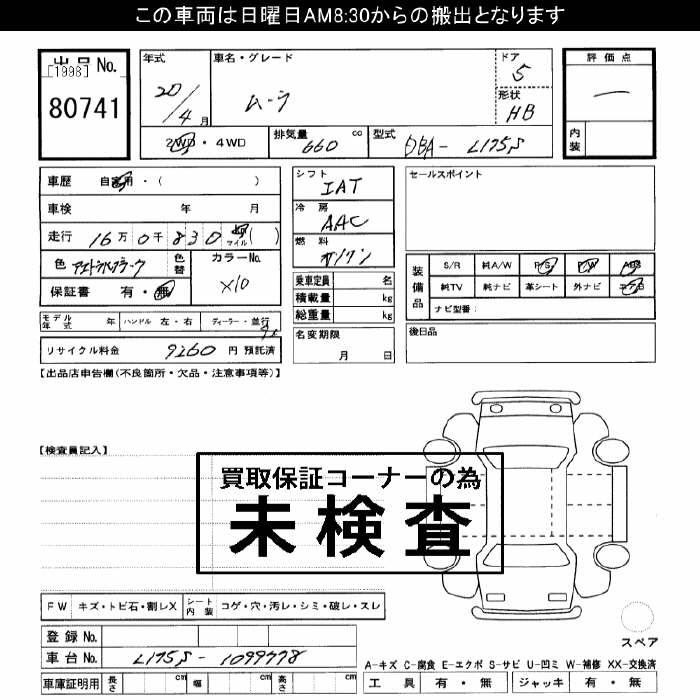 この車両は日曜日AM8:30からの搬出となります
出品No.
[1998]
80741
年式
20/4月
車名・グレード
ムーヴ
ドア
5
形状
HB
評価点
一
内装
2WD・4WD
排気量 660 cc
型式 DBA- L175S
車歴 自家用・( )
車検 年 月
走行 16万0千830 km マイル ( )
色
色替
カラーNo.
X10
保証書 有・無
モデル年式 年 ハンドル 左・右 ディーラー・並行
リサイクル料金 9260 円 預託済
シフト
IAT
冷房
AAC
燃料
ガソリン
乗車定員 名
積載量 kg
総重量 kg
名変期限
月 日
セールスポイント
装備品
S/R 純A/W P/S P/W ABS
純TV 純ナビ 革シート 外ナビ エアB
ナビ型番:
後日品
【出品店申告欄(不良箇所・欠品・注意事項等)】
【検査員記入】
買取保証コーナーの為
未検査
FW キズ・トビ石・割レX シート内装 コゲ・穴・汚レ・シミ・破レ・スレ
登録No.
車台No. L175S- 1099778
車庫証明用 長さ cm 幅 cm 高さ cm
スペア
A-キズ C-腐食 E-エクボ S-サビ U-凹ミ W-補修 XX-交換済
工具 有・無 ジャッキ 有・無